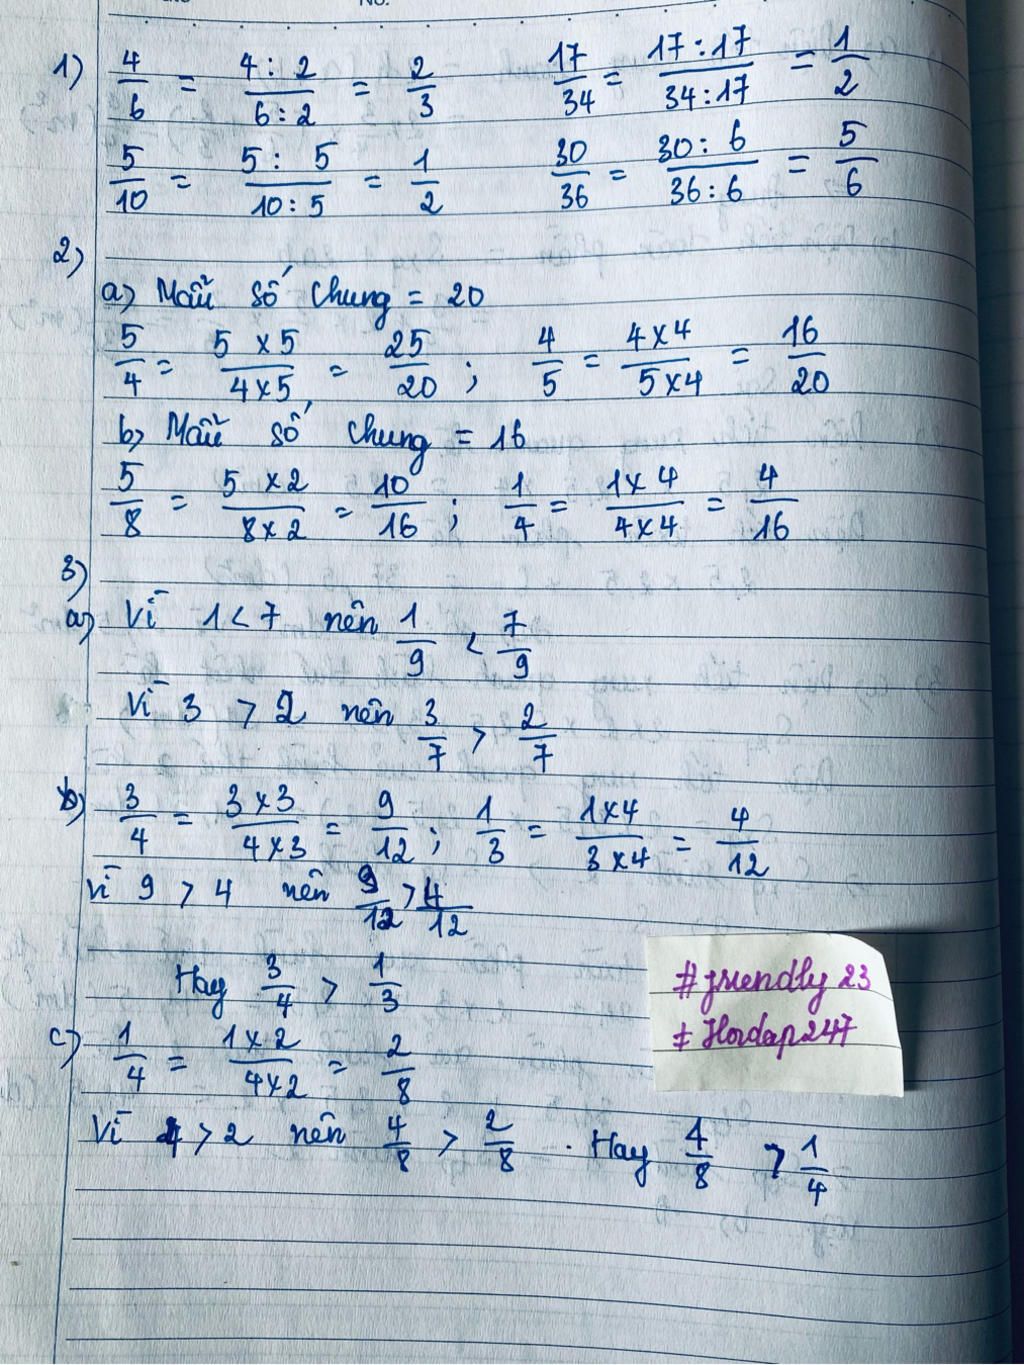 No.
1) 4/6 = 4 : 2 / 6 : 2 = 2/3   17/34 = 17 : 17 / 34 : 17 = 1/2
5/10 = 5 : 5 / 10 : 5 = 1/2   30/36 = 30 : 6 / 36 : 6 = 5/6
2)
a) Mẫu số chung = 20
5/4 = 5 x 5 / 4 x 5 = 25/20 ; 4/5 = 4 x 4 / 5 x 4 = 16/20
b) Mẫu số chung = 16
5/8 = 5 x 2 / 8 x 2 = 10/16 ; 1/4 = 1 x 4 / 4 x 4 = 4/16
3)
a) Vì 1 < 7 nên 1/9 < 7/9
Vì 3 > 2 nên 3/7 > 2/7
b) 3/4 = 3 x 3 / 4 x 3 = 9/12 ; 1/3 = 1 x 4 / 3 x 4 = 4/12
Vì 9 > 4 nên 9/12 > 4/12
Hay 3/4 > 1/3
c) 1/4 = 1 x 2 / 4 x 2 = 2/8
Vì 4 > 2 nên 4/8 > 2/8 . Hay 4/8 > 1/4
# friendly 23
# Hoidap247